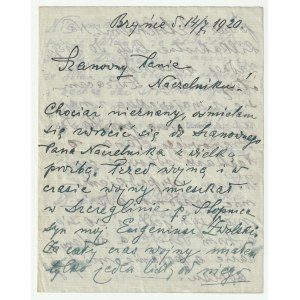 Bryńce d. 14/7 1920.
Szanowny Panie
Naczelniku!
Chociaż nieznany, ośmielam
się zwrócić się do Szanownego
Pana Naczelnika z wielką
prośbą. Przed wojną i w
czasie wojny mieszkał
w Szczeglinie p. Stopnica
syn mój Eugeniusz Zwolski
Za cały czas wojny miałem
tylko jeden list od niego